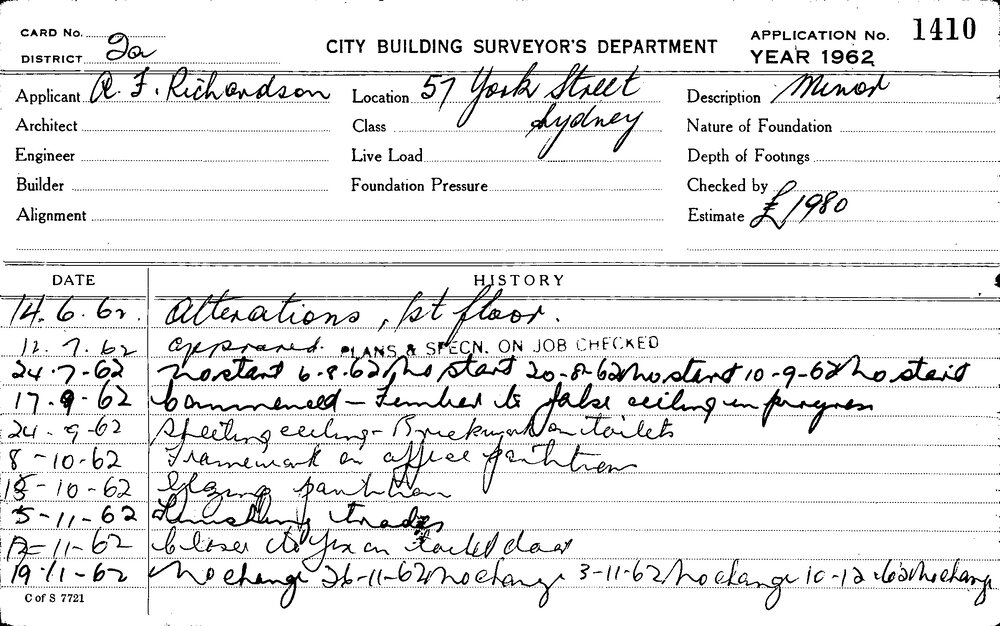 CARD No.
DISTRICT 2a
CITY BUILDING SURVEYOR'S DEPARTMENT
APPLICATION No. 1410
YEAR 1962
Applicant R. F. Richardson
Location 57 York Street
Sydney
Description Minor
Architect
Class
Nature of Foundation
Engineer
Live Load
Depth of Footings
Builder
Foundation Pressure
Checked by
Alignment
Estimate £1980
DATE HISTORY
14.6.62. Alterations, 1st floor.
12.7.62 approved. PLANS & SPECN. ON JOB CHECKED
24-7-62 No start 6-8-62 No start 20-8-62 No start 10-9-62 No start
17-9-62 Commenced - Timber to false ceiling in progress
24-9-62 Sheeting ceiling - Brickwork on toilets
8-10-62 Framework on office partitions
15-10-62 Glazing partition
5-11-62 Finishing trades
12-11-62 Closer to fix on toilet door
19-11-62 No change 26-11-62 No change 3-11-62 No change 10-12-62 No change
C of S 7721